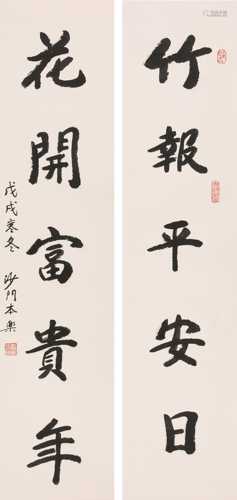 竹報平安日
花開富貴年
戊戌寒冬 沙門本樂